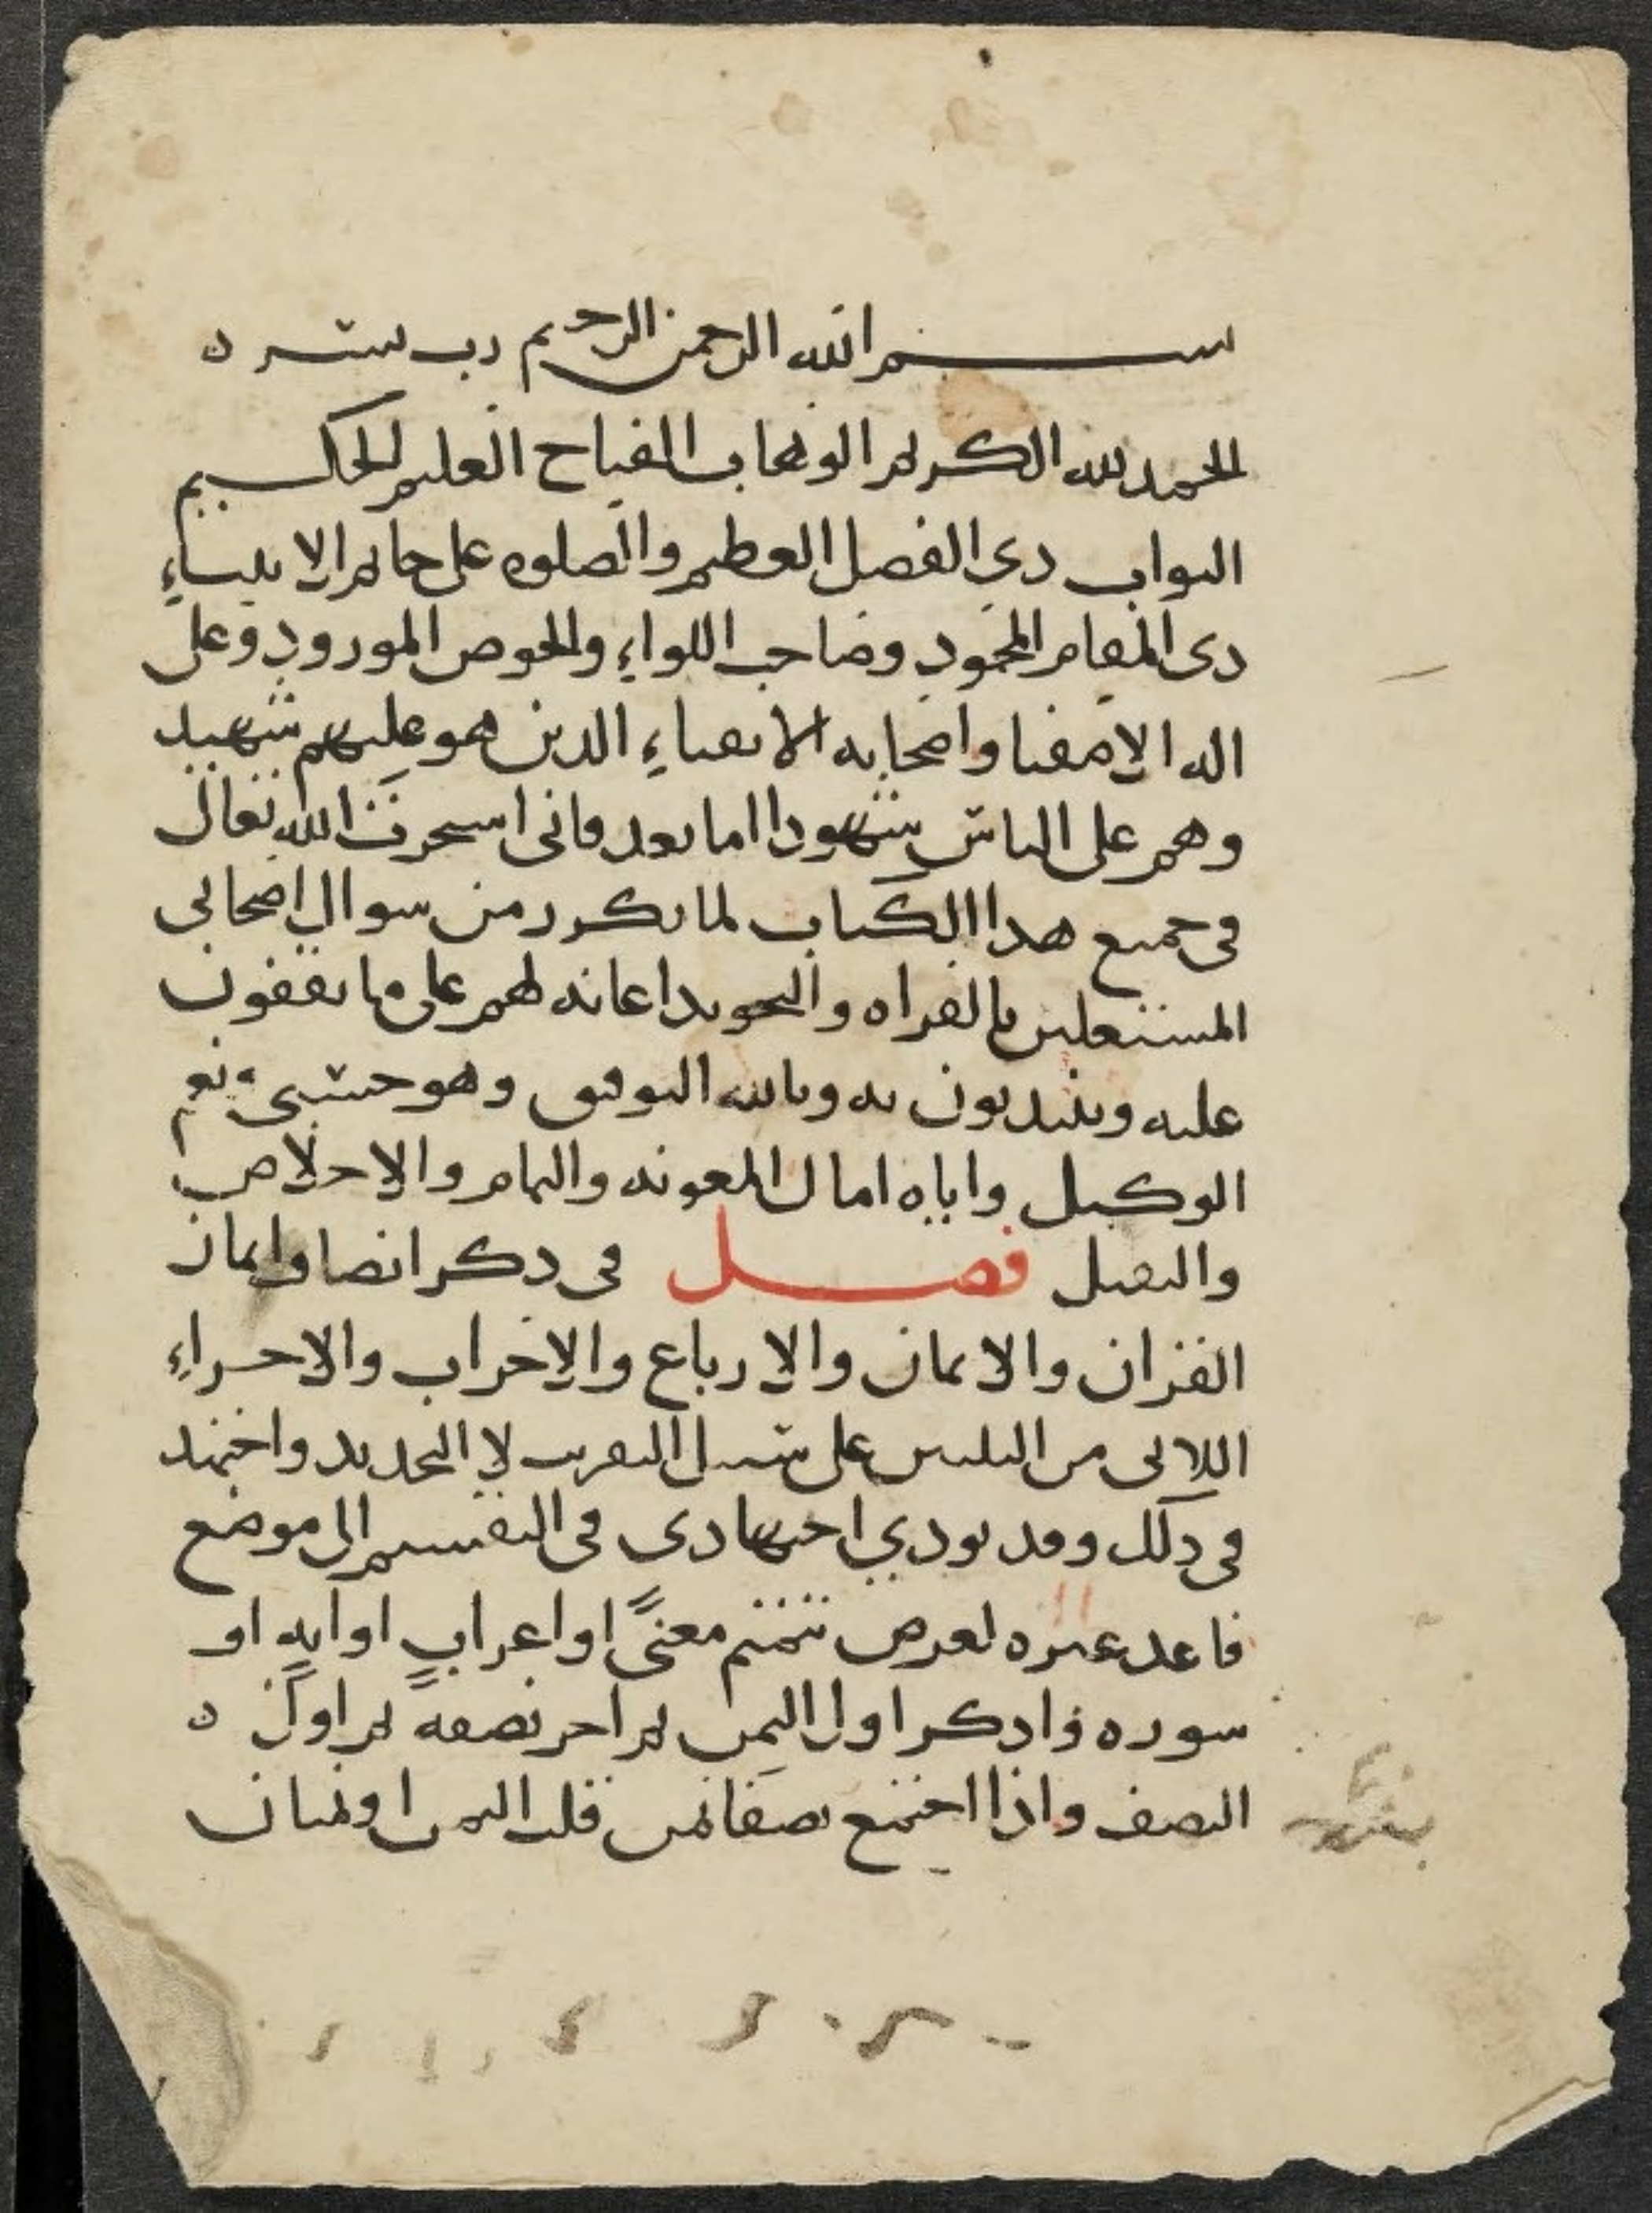 بسم الله الرحمن الرحيم رب يسر ه
الحمد لله الكريم الوهاب الفتاح العليم الحكيم
التواب ذي الفضل العظيم والصلوه على خاتم الانبياءِ
ذى المقام المحمودِ وصاحب اللواءِ والحوض المورودِ وعلى
اله الاصفيا واصحابه الاتقياءِ الذين هو عليهم شهيد
وهم على الناس شهودا اما بعد فانى استخرت الله تعالى
فى جميع هذا الكتاب لما تكرر من سوال اصحابى
المشتغلين بالقراه والتجويد اعانه لهم على ما يقفون
عليه ويبتدبون به وبالله التوفيق وهو حسبى ونعم
الوكيل واياه اسال المعونه والتمام والاخلاص
والتقبل فصل فى ذكر انصاف واثمان
القران والاثمان والارباع والاحزاب والاجزاءِ
اللاتى من الثلثين على سبيل التقريب لا التحديد واجتهد
فى ذلك وقد يودي اجتهادى فى التقسيم الى موضع
فاعد غيره لغرض تتمتم معنىً او اعرابٍ او ايهٍ او
سوره فاذكر اول الثمن ثم اخر نصفه ثم اول ه
النصف واذا اجتمع نصفا ثمن قلت الثمن او ثمنان